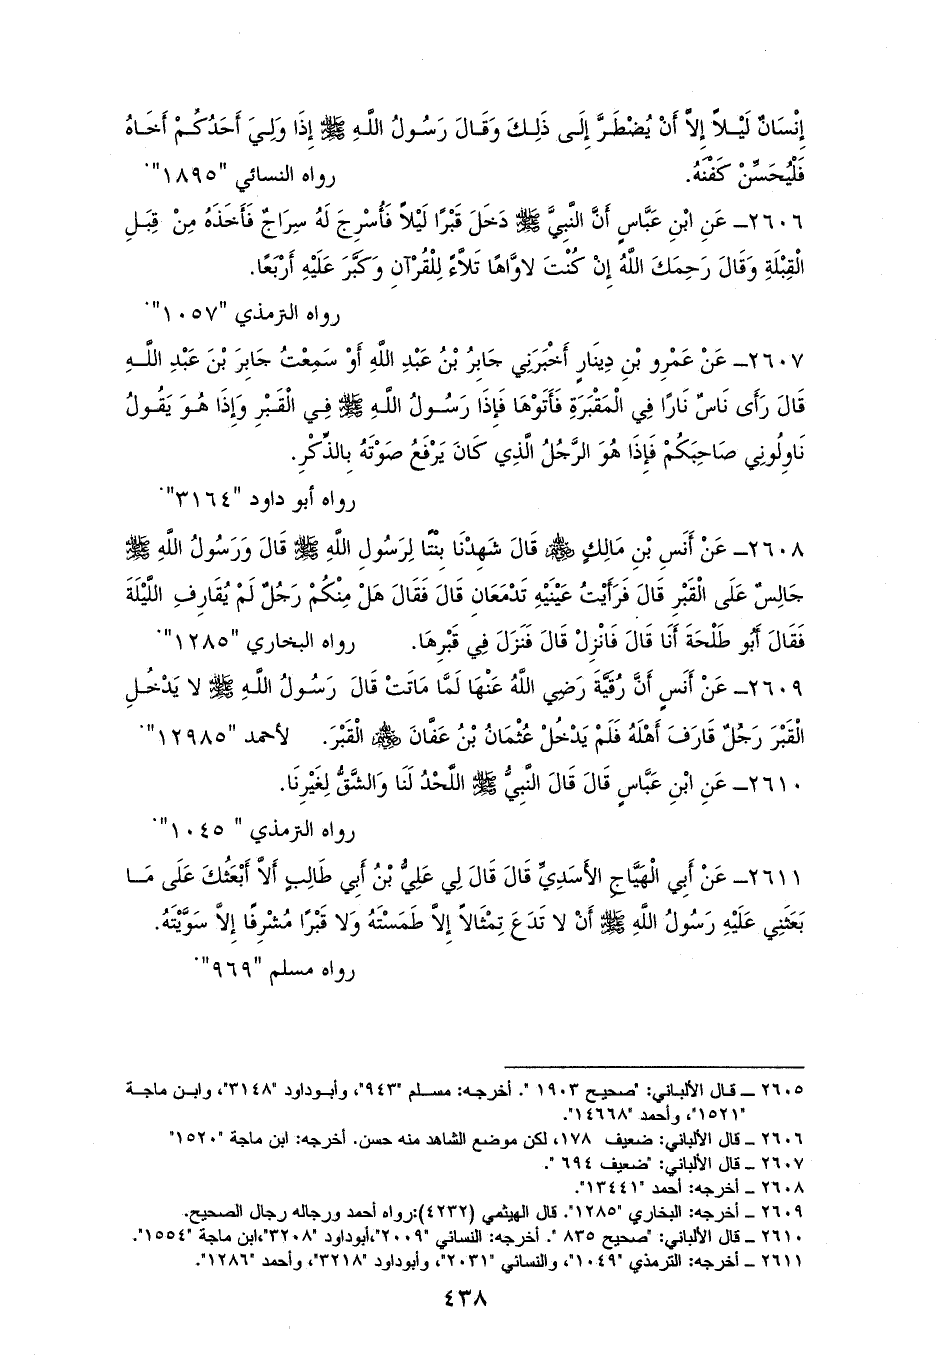 إِنْسَانٌ لَيْـلاً إِلاَّ أَنْ يُضْطَـرَّ إِلَـى ذَلِـكَ وَقَـالَ رَسُـولُ اللَّـهِ ﷺ إِذَا وَلِـيَ أَحَدُكُـمْ أَخَـاهُ
فَلْيُحَسِّنْ كَفْنَهُ. رواه النسائي "١٨٩٥".
٢٦٠٦ـ عَنِ ابْنِ عَبَّاسٍ أَنَّ النَّبِيَّ ﷺ دَخَلَ قَبْرًا لَيْلاً فَأُسْرِجَ لَهُ سِرَاجٌ فَأَخَذَهُ مِنْ قِبَلِ
الْقِبْلَةِ وَقَالَ رَحِمَكَ اللَّهُ إِنْ كُنْتَ لاوَّاهًا تَلاَّءً لِلْقُرْآنِ وَكَبَّرَ عَلَيْهِ أَرْبَعًا.
رواه الترمذي "١٠٥٧".
٢٦٠٧ـ عَنْ عَمْرِو بْنِ دِينَارٍ أَخْبَرَنِي جَابِرُ بْنُ عَبْدِ اللَّهِ أَوْ سَمِعْتُ جَابِرَ بْنَ عَبْدِ اللَّـهِ
قَالَ رَأَى نَاسٌ نَارًا فِي الْمَقْبَرَةِ فَأَتَوْهَا فَإِذَا رَسُـولُ اللَّـهِ ﷺ فِـي الْقَبْـرِ وَإِذَا هُـوَ يَقُولُ
نَاوِلُونِي صَاحِبَكُمْ فَإِذَا هُوَ الرَّجُلُ الَّذِي كَانَ يَرْفَعُ صَوْتَهُ بِالذِّكْرِ.
رواه أبو داود "٣١٦٤".
٢٦٠٨ـ عَنْ أَنَسِ بْنِ مَالِكٍ ﷺ قَالَ شَهِدْنَا بِنْتًا لِرَسُولِ اللَّهِ ﷺ قَالَ وَرَسُولُ اللَّهِ ﷺ
جَالِسٌ عَلَى الْقَبْرِ قَالَ فَرَأَيْتُ عَيْنَيْهِ تَدْمَعَانِ قَالَ فَقَالَ هَلْ مِنْكُمْ رَجُلٌ لَمْ يُقَارِفِ اللَّيْلَةَ
فَقَالَ أَبُو طَلْحَةَ أَنَا قَالَ فَانْزِلْ قَالَ فَنَزَلَ فِي قَبْرِهَا. رواه البخاري "١٢٨٥".
٢٦٠٩ـ عَنْ أَنَسٍ أَنَّ رُقَيَّةَ رَضِي اللَّهُ عَنْهَا لَمَّا مَاتَتْ قَالَ رَسُـولُ اللَّـهِ ﷺ لا يَدْخُـلِ
الْقَبْرَ رَجُلٌ قَارَفَ أَهْلَهُ فَلَمْ يَدْخُلْ عُثْمَانُ بْنُ عَفَّانَ الْقَبْرَ. لأحمد "١٢٩٨٥".
٢٦١٠ـ عَنِ ابْنِ عَبَّاسٍ قَالَ قَالَ النَّبِيُّ ﷺ اللَّحْدُ لَنَا وَالشَّقُّ لِغَيْرِنَا.
رواه الترمذي " ١٠٤٥".
٢٦١١ـ عَنْ أَبِي الْهَيَّاجِ الأَسَدِيِّ قَالَ قَالَ لِي عَلِيُّ بْنُ أَبِي طَالِبٍ أَلاَّ أَبْعَثُكَ عَلَى مَـا
بَعَثَنِي عَلَيْهِ رَسُولُ اللَّهِ ﷺ أَنْ لا تَدَعَ تِمْثَالاً إِلاَّ طَمَسْتَهُ وَلا قَبْرًا مُشْرِفًا إِلاَّ سَوَّيْتَهُ.
رواه مسلم "٩٦٩".
٢٦٠٥ ـ قـال الألبـاني: "صحيح ١٩٠٣ ". أخرجه: مسلـم "٩٤٣"، وأبـوداود "٣١٤٨"، وابـن ماجـة
"١٥٢١"، وأحمد "١٤٦٦٨".
٢٦٠٦ ـ قال الألباني: ضعيف ١٧٨، لكن موضع الشاهد منه حسن. أخرجه: ابن ماجة "١٥٢٠"
٢٦٠٧ ـ قال الألباني: "ضعيف ٦٩٤ ".
٢٦٠٨ ـ أخرجه: أحمد "١٣٤٤١".
٢٦٠٩ ـ أخرجه: البخاري "١٢٨٥". قال الهيثمي (٤٢٣٢):رواه أحمد ورجاله رجال الصحيح.
٢٦١٠ ـ قال الألباني: "صحيح ٨٣٥ ". أخرجه: النسائي "٢٠٠٩"،أبوداود "٣٢٠٨"،ابن ماجة "١٥٥٤".
٢٦١١ ـ أخرجه: الترمذي "١٠٤٩"، والنسائي "٢٠٣١"، وأبوداود "٣٢١٨"، وأحمد "١٢٨٦".
٤٣٨